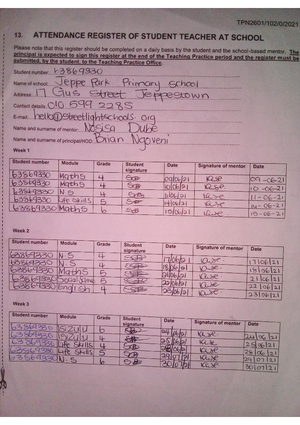 TPN2601/102/0/2021
13. ATTENDANCE REGISTER OF STUDENT TEACHER AT SCHOOL
Please note that this register should be completed on a daily basis by the student and the school-based mentor. The
principal is expected to sign this register at the end of the Teaching Practice period and the register must
be submitted, by the student, to the Teaching Practice Office.
Student number: 63869330
Name of school: Jeppe Park Primary School
Address: 17 Gus Street Jeppestown
Contact details: 010 599 2285
E-mail: hello@streetlightschools.org
Name and surname of mentor: Nosisa Dube
Name and surname of principal/HOD: Brian Ngoveni
Week 1
Student number Module Grade Student signature Date Signature of mentor Date
63869330 Maths 4 09/06/21 09-06-21
63869330 Maths 4 10/06/21 10-06-21
63869330 N.S 4 11/06/21 11-06-21
63869330 Life Skills 5 14/06/21 14-06-21
63869330 Maths 6 15/06/21 15-06-21
Week 2
Student number Module Grade Student signature Date Signature of mentor Date
63869330 N.S 4 17/06/21 17/06/21
63869330 N.S 4
63869330 Maths 5 18/06/21
63869330 5 21/06/21
63869330 English 4 22/06/21
23/06/21
Week 3
Student number Module Grade Student signature Date Signature of mentor Date
63869330 IsiZulu 6 24/06/21
63869330 IsiZulu 4 25/06/21
63869330 Life Skills 4 28/06/21
63869330 Life Skills 5 29/07/21
63869330 N.S 6 30/07/21 30/07/21